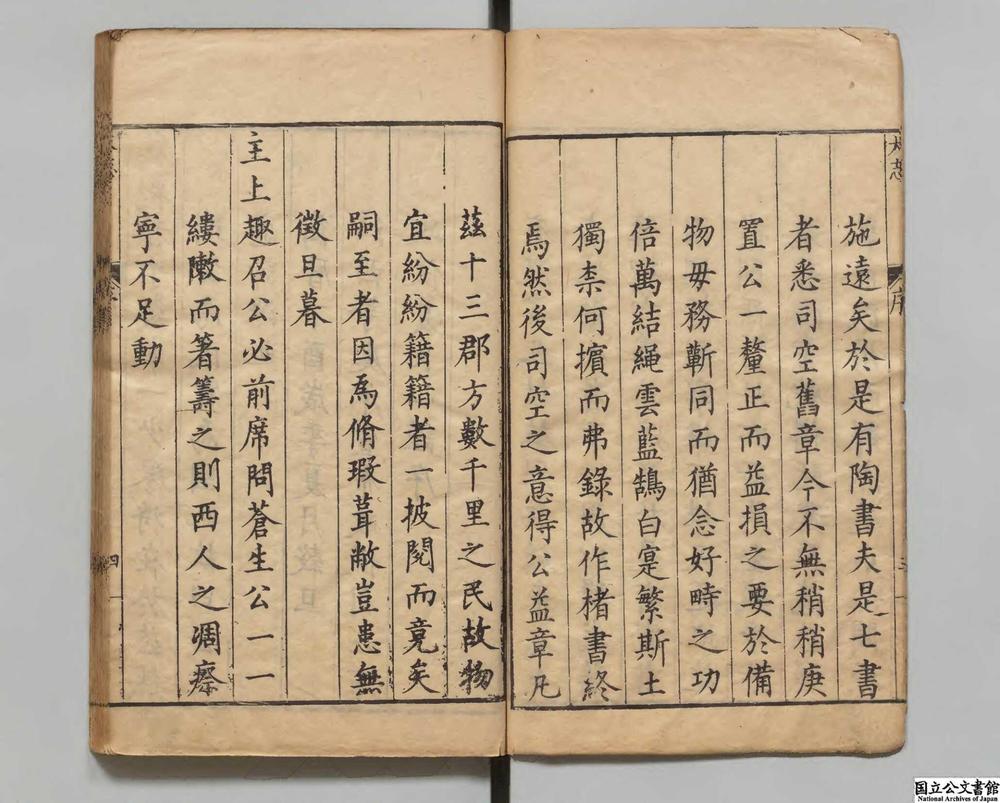 施遠矣於是有陶書夫是七書
者悉司空舊章今不無稍稍庚
置公一釐正而益損之要於備
物毋務蘄同而猶念好畤之功
倍萬結繩雲藍鵠白寔繁斯土
獨柰何擯而弗錄故作楮書終
焉然後司空之意得公益章凡
茲十三郡方數千里之民故物
宜紛紛籍籍者一披閱而竟矣
嗣至者因為脩瑕葺敝豈患無
徵旦暮
主上趣召公必前席問蒼生公一一
縷敶而箸籌之則西人之凋瘵
寧不足動
序
三
四
国立公文書館
National Archives of Japan